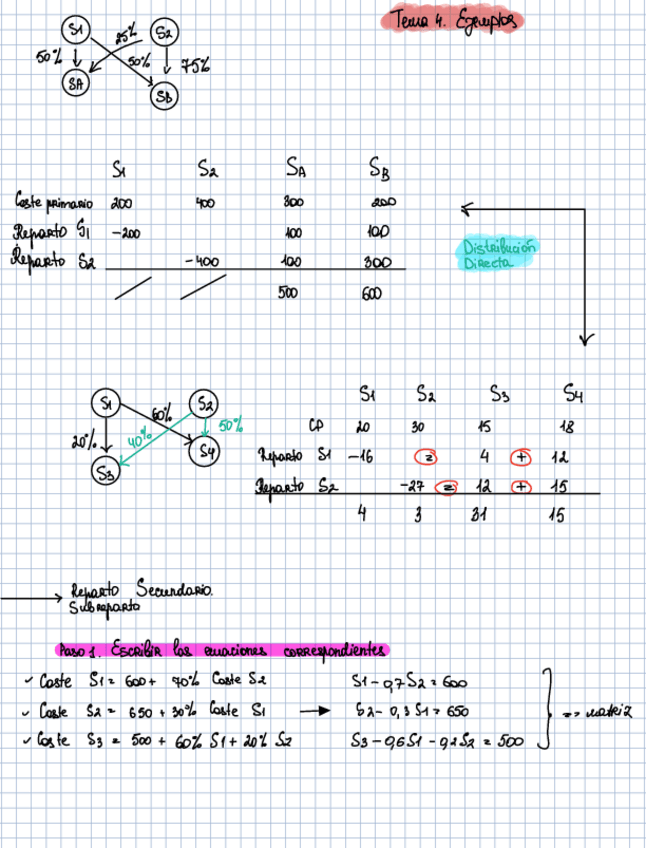 Tema 4. Ejemplos
S1 S2
50% 25% 50% 75%
SA SB
S1 S2 SA SB
Coste primario 200 400 300 200
Reparto S1 -200 100 100
Reparto S2 -400 100 300
500 600
Distribución
Directa
S1 S2
20% 60% 40% 50%
S3 S4
S1 S2 S3 S4
CP 20 30 15 18
Reparto S1 -16 = 4 + 12
Reparto S2 -27 = 12 + 15
4 3 31 15
Reparto Secundario.
Subreparto
Paso 1. Escribir las ecuaciones correspondientes
✓ Coste S1 = 600 + 70% Coste S2 S1 - 0,7 S2 = 600
✓ Coste S2 = 650 + 30% Coste S1 → S2 - 0,3 S1 = 650 => matriz
✓ Coste S3 = 500 + 60% S1 + 20% S2 S3 - 0,6 S1 - 0,2 S2 = 500